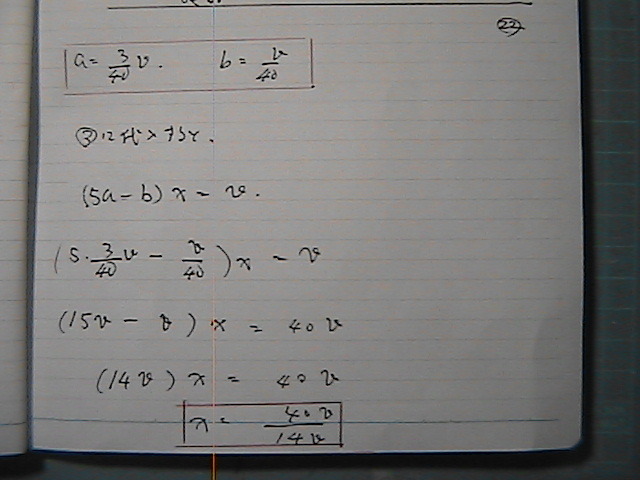 ㉒
a = 3/40 v. b = v/40
③に代入すると、
(5a - b) x = v.
(5・3/40 v - v/40) x = v
(15v - v) x = 40v
(14v) x = 40v
x = 40v/14v